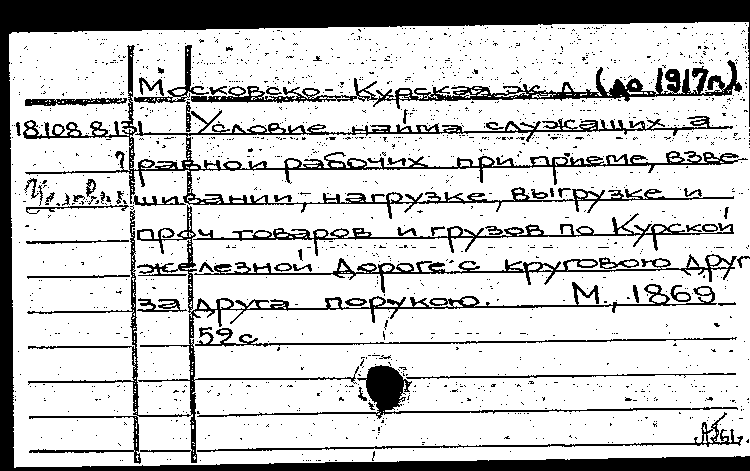 Московско-Курская ж. д. (до 1917г.).
18.108.8.131 Условие найма служащих, а
равной рабочих при приеме, взве-
Условия шивании, нагрузке, выгрузке и
проч товаров и грузов по Курской
железной Дороге с круговою друг
за друга порукою. М., 1869
52с.